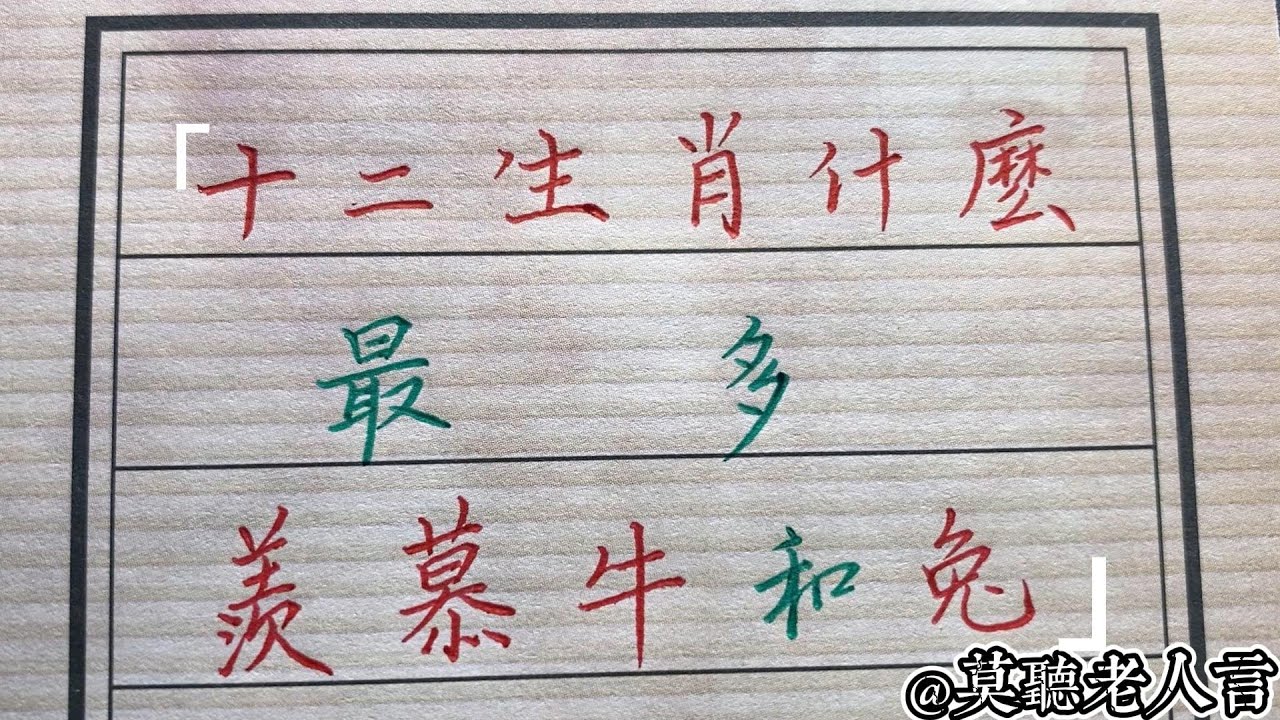 「十二生肖什麼
最多
羨慕牛和兔」
@莫聽老人言